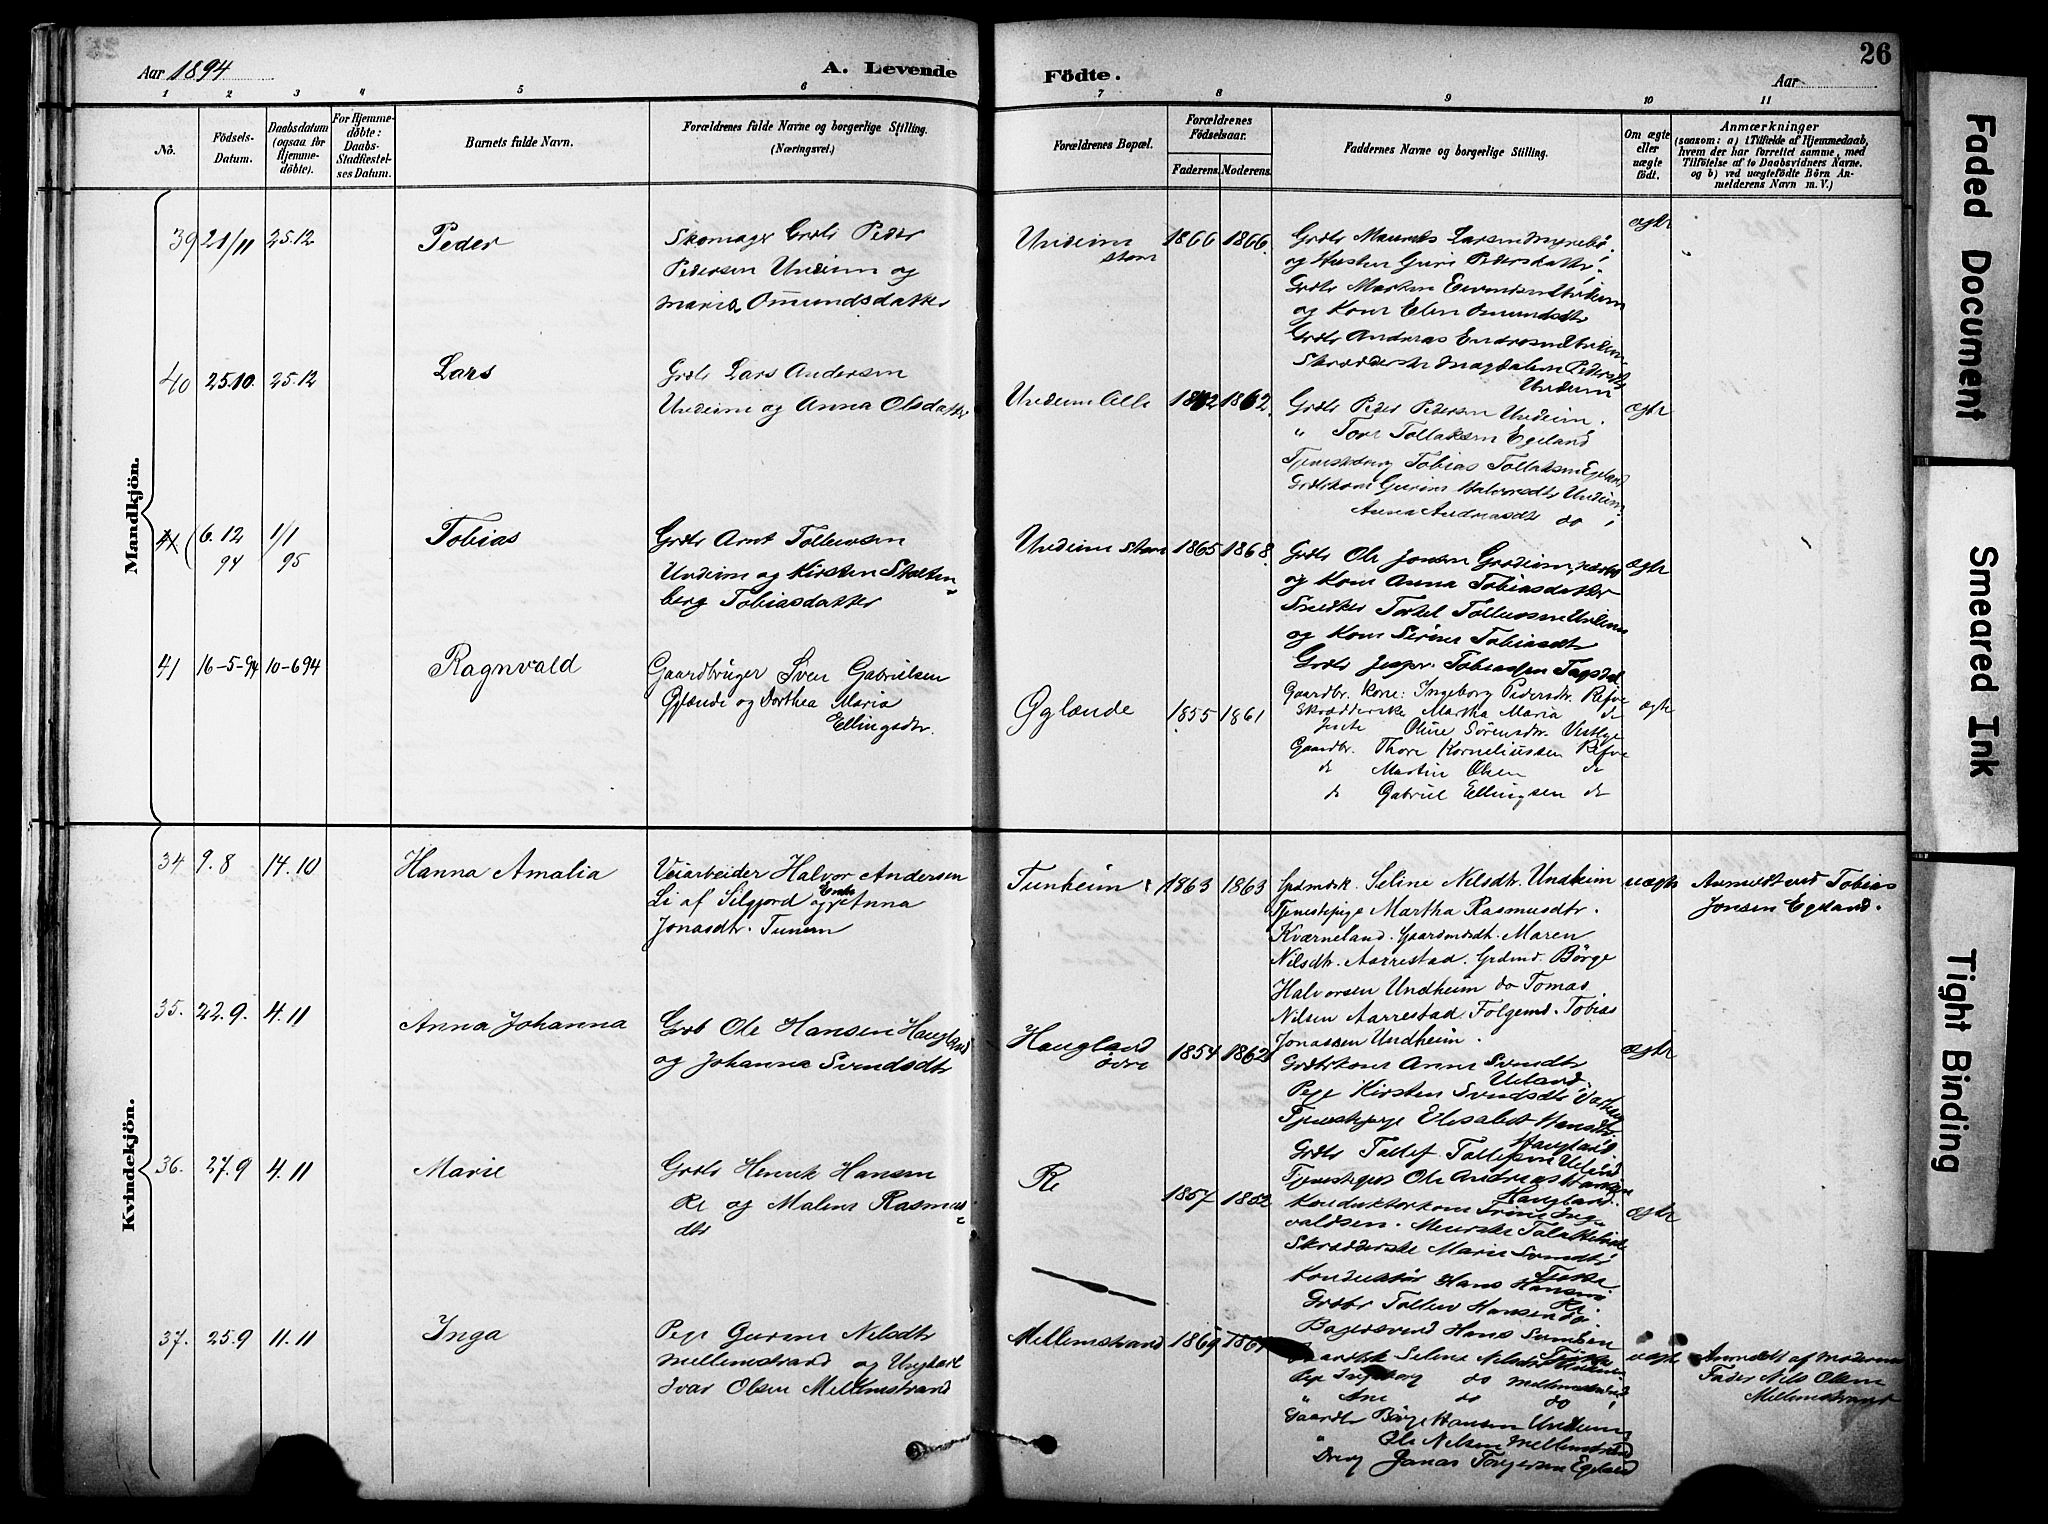 Aar 1894
A. Levende
Födte.
Aar
26
1 2 3 4 5 6 7 8 9 10 11
No.
Födsels-
Datum.
Daabsdatum
(ogsaa for
Hjemme-
döbte).
For Hjemme-
döbte:
Daabs-
Stadfæstel-
ses Datum.
Barnets fulde Navn.
Forældrenes fulde Navne og borgerlige Stilling.
(Næringsvei.)
Forældrenes Bopæl.
Forældrenes
Födselsaar.
Faderens. Moderens.
Faddernes Navne og borgerlige Stilling.
Om ægte
eller
uægte
födt.
Anmærkninger
(saasom: a) i Tilfælde af Hjemmedaab,
hvem der har forrettet samme, med
Tilföielse af to Daabsvidners Navne.
og b) ved uægtefödte Börn An-
melderens Navn m. V.)
Mandkjön.
39 21/11 25.12
Peder
Skomager Grdb Peder
Pedersen Undeim og
Maria Omundsdatter
Undeim
store
1866 1866
Grdb Maurits Larsen Myrebö
og Husten Guri Pedersdatter
og Kone Elen Omundsdtr
Undeim
ægte
40 25.10. 25.12
Lars
Grdb Lars Andersen
Undeim og Anna Olsdatter
Undeim Lille
1862 1862.
Grdb Peder Pedersen Undeim.
" Tore Tollaksen Egeland
Tjenestedreng Tobias Tollaksen Egeland
Anna Andreasdtr do
ægte
41 6.12
94
1/1
95
Tobias
Grdb Arnt Tollevsen
Undeim og Kirsten Stolten-
berg Tobiasdatter
Undeim store
1865 1868
Grdb Ole Jonsen Grödeim, nærbø
og Kone Anna Tobiasdatter
Snedker Torkel Tollevsen Undeim
og Kone Serine Tobiasdtr
ægte
41 16-5-94 10-6 94
Ragnvald
Gaardbruger Sven Gabrielsen
Øglænde og Dorthea Maria
Ellingsdtr.
Øglænde
1855 1861
Gaardbr. Kone: Ingeborg Pedersdtr. Refve
Skrædderske Martha Maria do
Jente Oline Sörensdtr. Vestlye
Gaardbr. Thore Korneliussen Refve
do Martin Olsen do
do Gabriel Ellingsen do
ægte
Kvindekjön.
34 9.8 14.10
Hanna Amalia
Veiarbeider Halvor Andersen
Li af Silgjord og Enke Anna
Jonasdtr. Tunem
Tunheim
1863 1863
Grdmdsk. Seline Nilsdtr. Undheim
Tjenestepige Martha Rasmusdtr.
Kværneland. Gaardmdsdt. Maren
Nilsdtr. Aarrestad. Grdmd. Börge
Halvorsen Undheim do Tomas
Nilsen Aarrestad. Folgemd. Tobias
Jonassen Undheim.
uægte
Anmeldt ved Tobias
Jonsen Egeland.
35. 22.9. 4.11
Anna Johanna
Grdb Ole Hansen Haugland
og Johanna Svendsdtr
Haugland
övre
1854 1862
Grdbrkone Anne Svendtr
Ueland.
Pige Kirsten Svendsdtr
Tjenestepige Elisabet Hansdtr
Haugland
Grdb Tollef Tollefsen Ueland
Haugland
ægte
36. 27.9 4.11
Marie
Grdb Henrik Hansen
Re og Malene Rasmus-
dtr
Re
1857 1852
Konduktorkone Trine Inge
valdsen.
Skrædderske Marie Svendtr
Konduktör Hans Hansen
Re
Grdbr Tollev Hansen do
Bagersvend Hans Svendsen
ægte
37. 25.9 11.11
Inga
Pige Gurine Nilsdtr
Mellemstrand og Ungkarl
Ivar Olsen Mellemstrand
Mellemstrand
1869
Pige Ingeborg do Mellemstrand
" Ane do do
Gaardb Börge Hansen Undeim
" Ole Nilsen Mellemstrand
Dreng Jonas Torgersen Egeland
uægte
Anmeldt af Moderens
Fader Nils Olsen
Mellemstrand
Faded Document
Smeared Ink
Tight Binding